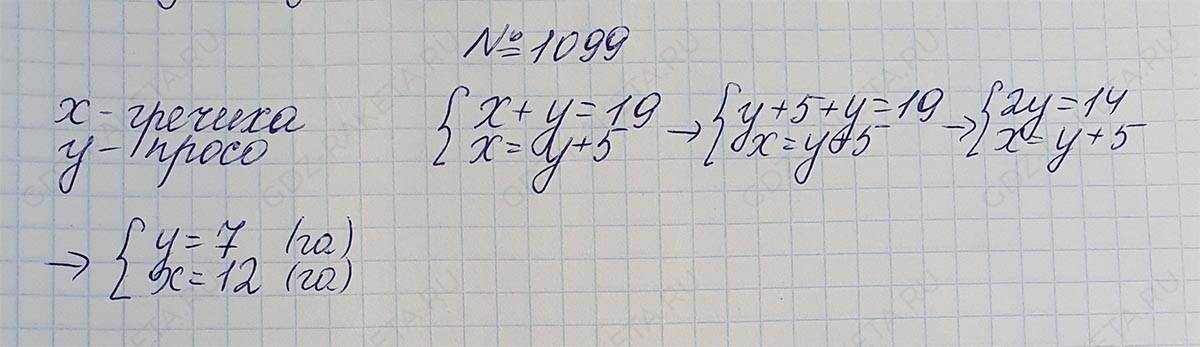 №1099
x - гречиха
y - просо
{ x + y = 19
x = y + 5 → { y + 5 + y = 19
x = y + 5 → { 2y = 14
x = y + 5
→ { y = 7 (га)
x = 12 (га)